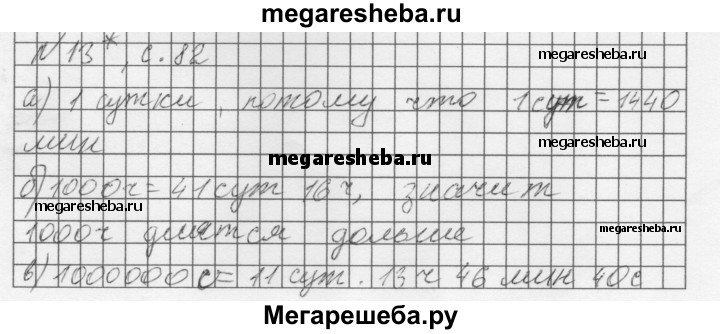 megaresheba.ru
N 13*, с. 82
megaresheba.ru
а) 1 сутки, потому что 1 сут = 1440
мин
megaresheba.ru
megaresheba.ru
б) 1000ч = 41 сут 16 ч, значит
megaresheba.ru
megaresheba.ru
1000ч длится дольше
в) 1000000 с = 11 сут. 13 ч 46 мин 40с
Мегарешеба.ру